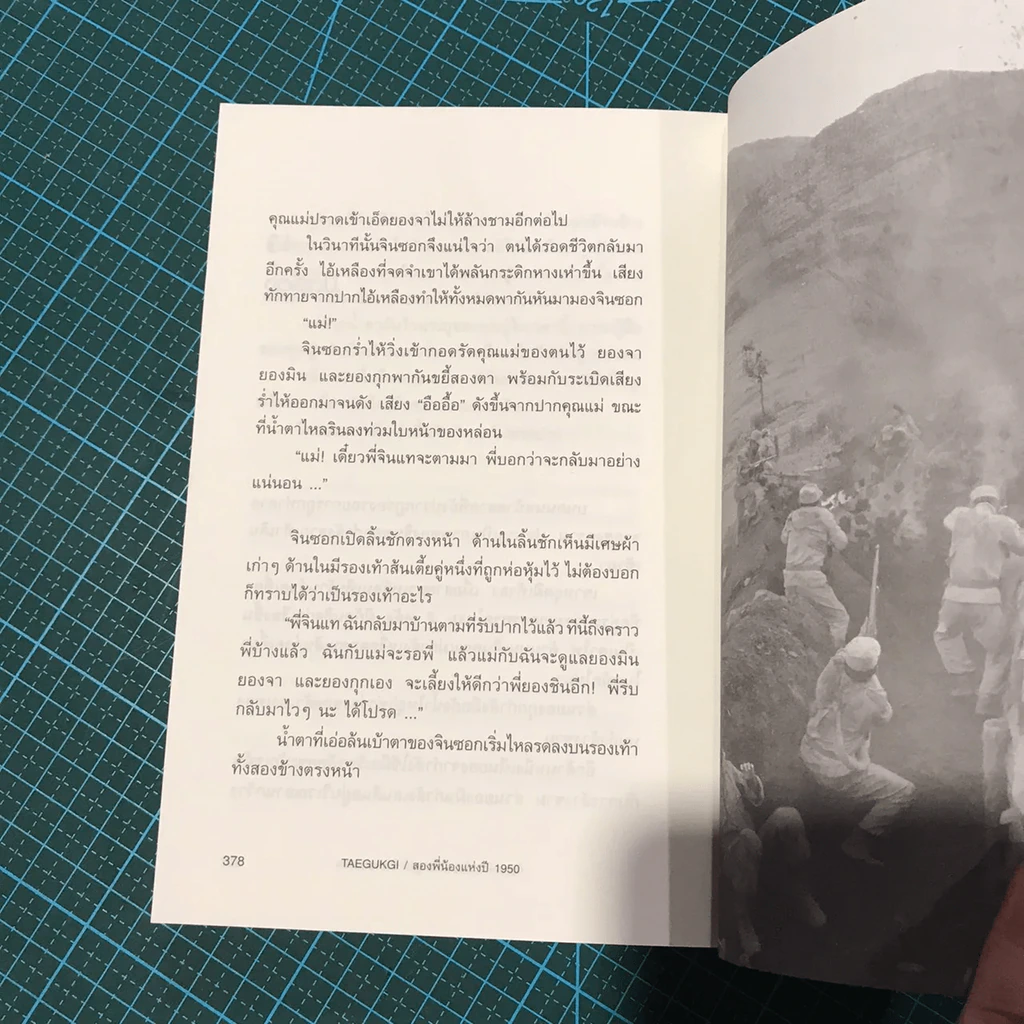 คุณแม่ปราดเข้าเอ็ดยองจาไม่ให้ล้างชามอีกต่อไป
ในวินาทีนั้นจินซอกจึงแน่ใจว่า ตนได้รอดชีวิตกลับมา
อีกครั้ง ไอ้เหลืองที่จดจำเขาได้พลันกระดิกหางเห่าขึ้น เสียง
ทักทายจากปากไอ้เหลืองทำให้ทั้งหมดพากันหันมามองจินซอก
“แม่!”
จินซอกร่ำไห้วิ่งเข้ากอดรัดคุณแม่ของตนไว้ ยองจา
ยองมิน และยองกุกพากันขยี้สองตา พร้อมกับระเบิดเสียง
ร่ำไห้ออกมาจนดัง เสียง “อืออื้อ” ดังขึ้นจากปากคุณแม่ ขณะ
ที่น้ำตาไหลรินลงท่วมใบหน้าของหล่อน
“แม่! เดี๋ยวพี่จินแทจะตามมา พี่บอกว่าจะกลับมาอย่าง
แน่นอน ...”
จินซอกเปิดลิ้นชักตรงหน้า ด้านในลิ้นชักเห็นมีเศษผ้า
เก่าๆ ด้านในมีรองเท้าส้นเตี้ยคู่หนึ่งที่ถูกห่อหุ้มไว้ ไม่ต้องบอก
ก็ทราบได้ว่าเป็นรองเท้าอะไร
“พี่จินแท ฉันกลับมาบ้านตามที่รับปากไว้แล้ว ทีนี้ถึงคราว
พี่บ้างแล้ว ฉันกับแม่จะรอพี่ แล้วแม่กับฉันจะดูแลยองมิน
ยองจา และยองกุกเอง จะเลี้ยงให้ดีกว่าพี่ยองชินอีก! พี่รีบ
กลับมาไวๆ นะ ได้โปรด ...”
น้ำตาที่เอ่อล้นเบ้าตาของจินซอกเริ่มไหลรดลงบนรองเท้า
ทั้งสองข้างตรงหน้า
378 TAEGUKGI / สองพี่น้องแห่งปี 1950